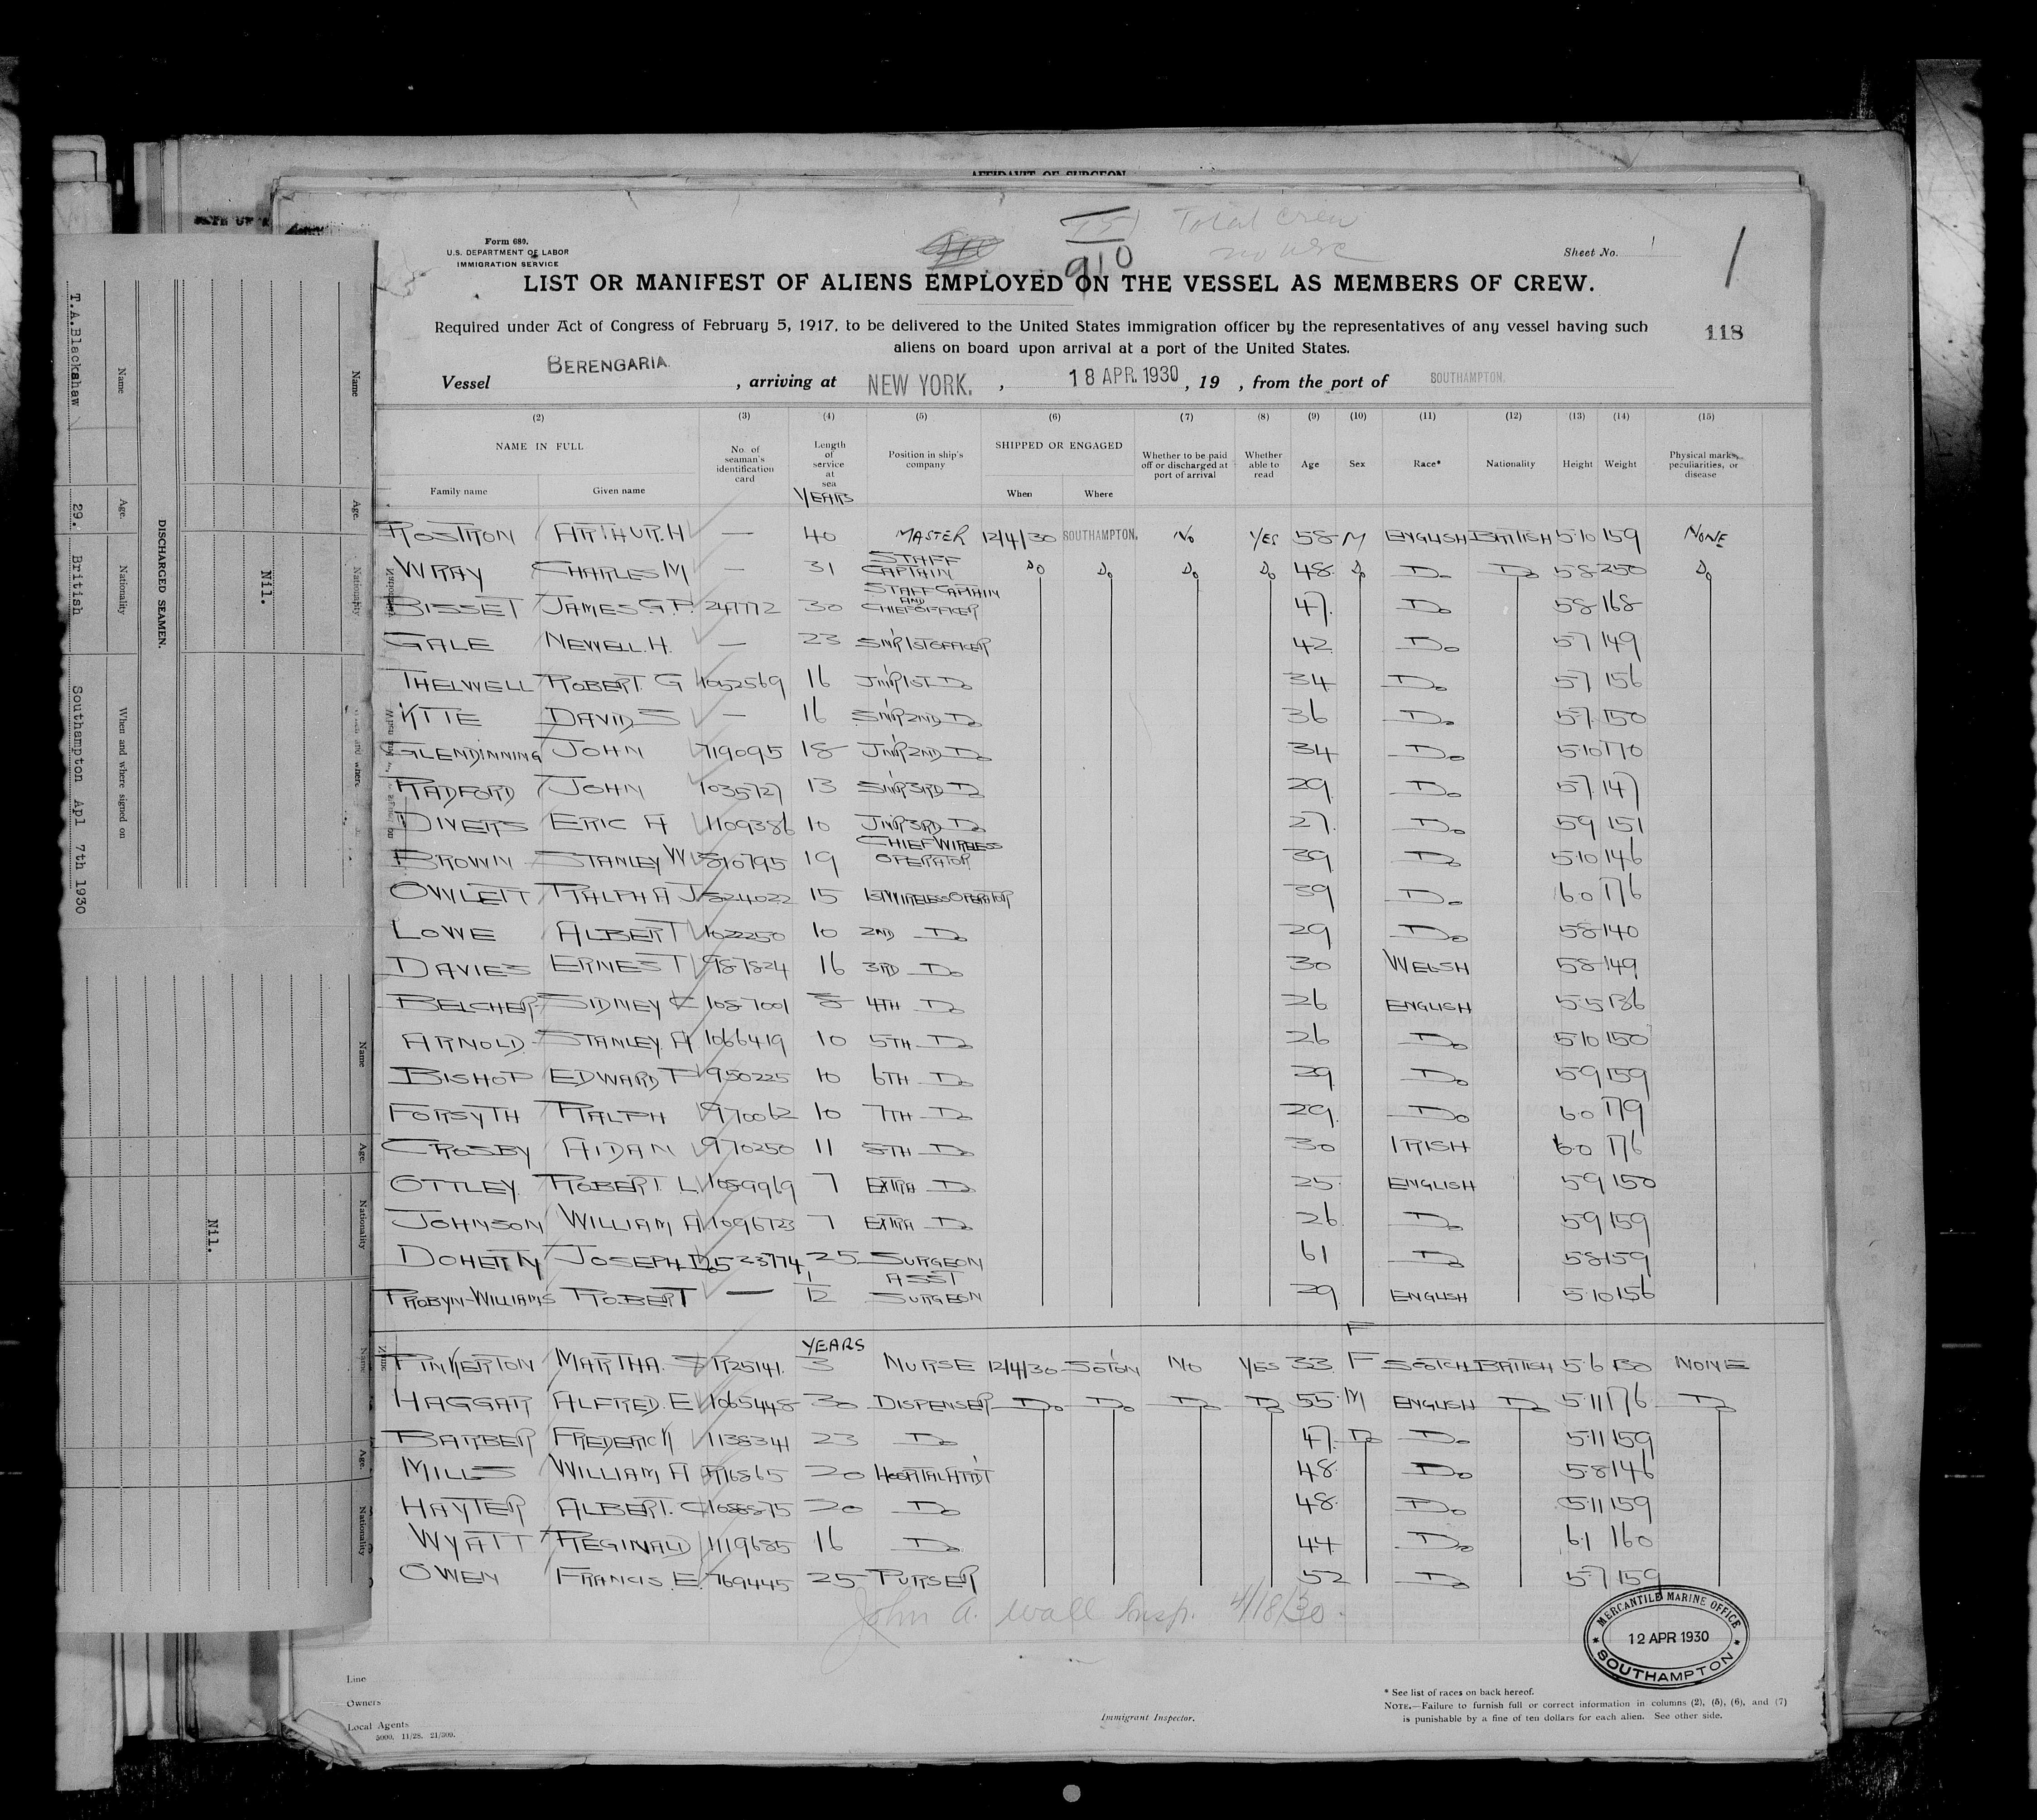 AFFIDAVIT OF SURGEON
Total crew
910
Form 689.
U.S. DEPARTMENT OF LABOR
IMMIGRATION SERVICE
Sheet No. 1
1
LIST OR MANIFEST OF ALIENS EMPLOYED ON THE VESSEL AS MEMBERS OF CREW.
Required under Act of Congress of February 5, 1917, to be delivered to the United States immigration officer by the representatives of any vessel having such
aliens on board upon arrival at a port of the United States.
118
Vessel BERENGARIA. , arriving at NEW YORK. , 18 APR. 1930, 19 , from the port of SOUTHAMPTON.
(2) (3) (4) (5) (6) (7) (8) (9) (10) (11) (12) (13) (14) (15)
NAME IN FULL No. of seaman's identification card Length of service at sea Position in ship's company SHIPPED OR ENGAGED Whether to be paid off or discharged at port of arrival Whether able to read Age Sex Race* Nationality Height Weight Physical marks, peculiarities, or disease
Family name Given name YEARS When Where
ROSTRON ARTHUR.H — 40 MASTER 12/4/30 SOUTHAMPTON. No YES 58 M ENGLISH BRITISH 5·10 159 NONE
WRAY CHARLES M — 31 STAFF CAPTAIN Do Do Do Do 48 Do Do Do 58 250 Do
BISSET JAMES G.P. 247772 30 STAFF CAPTAIN AND CHIEF OFFICER 47 Do 58 168
GALE NEWELL.H. — 23 SNR 1ST OFFICER 42 Do 57 149
THELWELL ROBERT. G 1052569 16 JNR 1ST Do 34 Do 57 156
DAVID S — 16 SNR 2ND Do 36 Do 57 150
GLENDINNING JOHN 719095 18 JNR 2ND Do 34 Do 5·10 170
RADFORD JOHN 1035727 13 SNR 3RD Do 29 Do 57 147
DIVERS ERIC A 1109386 10 JNR 3RD Do 27 Do 59 151
BROWN STANLEY W 19 CHIEF WIRELESS OPERATOR 39 Do 5·10 146
OWLETT RALPH A J 824022 15 1ST WIRELESS OPERATOR 39 Do 6·0 176
LOWE ALBERT 1022250 10 2ND Do 29 Do 58 140
DAVIES ERNEST 987824 16 3RD Do 30 WELSH 58 149
BELCHER SIDNEY 1087001 8 4TH Do 26 ENGLISH 5·5 136
ARNOLD STANLEY A 1066419 10 5TH Do 26 Do 5·10 150
BISHOP EDWARD P 950225 10 6TH Do 29 Do 59 159
FORSYTH RALPH 970062 10 7TH Do 29 Do 6·0 179
CROSBY AIDAN 970250 11 8TH Do 30 IRISH 6·0 176
OTTLEY ROBERT. L. 1089969 7 EXTRA Do 25 ENGLISH 59 150
JOHNSON WILLIAM A 1096723 7 EXTRA Do 26 Do 59 159
DOHERTY JOSEPH D 523774 25 SURGEON 61 Do 58 159
PROBYN-WILLIAMS ROBERT — 1/12 ASST SURGEON 29 ENGLISH 5·10 156
YEARS F
PINKERTON MARTHA. S R25141. 3 NURSE 12/4/30 SOTON NO YES 33 F SCOTCH BRITISH 5·6 130 NONE
HAGGAR ALFRED. E 1065448 30 DISPENSER Do Do Do Do 55 M ENGLISH Do 5·11 176 Do
BARBER FREDERICK 1138341 23 Do 47 Do Do 5·11 159
MILLS WILLIAM A 716865 20 HOSPITAL ATTDT 48 Do 58 146
HAYTER ALBERT. C 1088875 20 Do 48 Do 5·11 159
WYATT REGINALD 1119685 16 Do 44 Do 6·1 160
OWEN FRANCIS. E. 769445 25 PURSER 52 Do 5·7 159
John A. Wall Insp. 4/18/30.
MERCANTILE MARINE OFFICE
12 APR 1930
SOUTHAMPTON
Line
Owners
Local Agents
5000. 11/28. 21/309.
Immigrant Inspector.
* See list of races on back hereof.
NOTE.—Failure to furnish full or correct information in columns (2), (5), (6), and (7)
is punishable by a fine of ten dollars for each alien. See other side.
DISCHARGED SEAMEN.
Name Age. Nationality When and where signed on
T.A.Blackshaw 29. British Southampton Apl 7th 1930
Name Age. Nationality
Nil.
Name Age. Nationality
Nil.
Name Age. Nationality